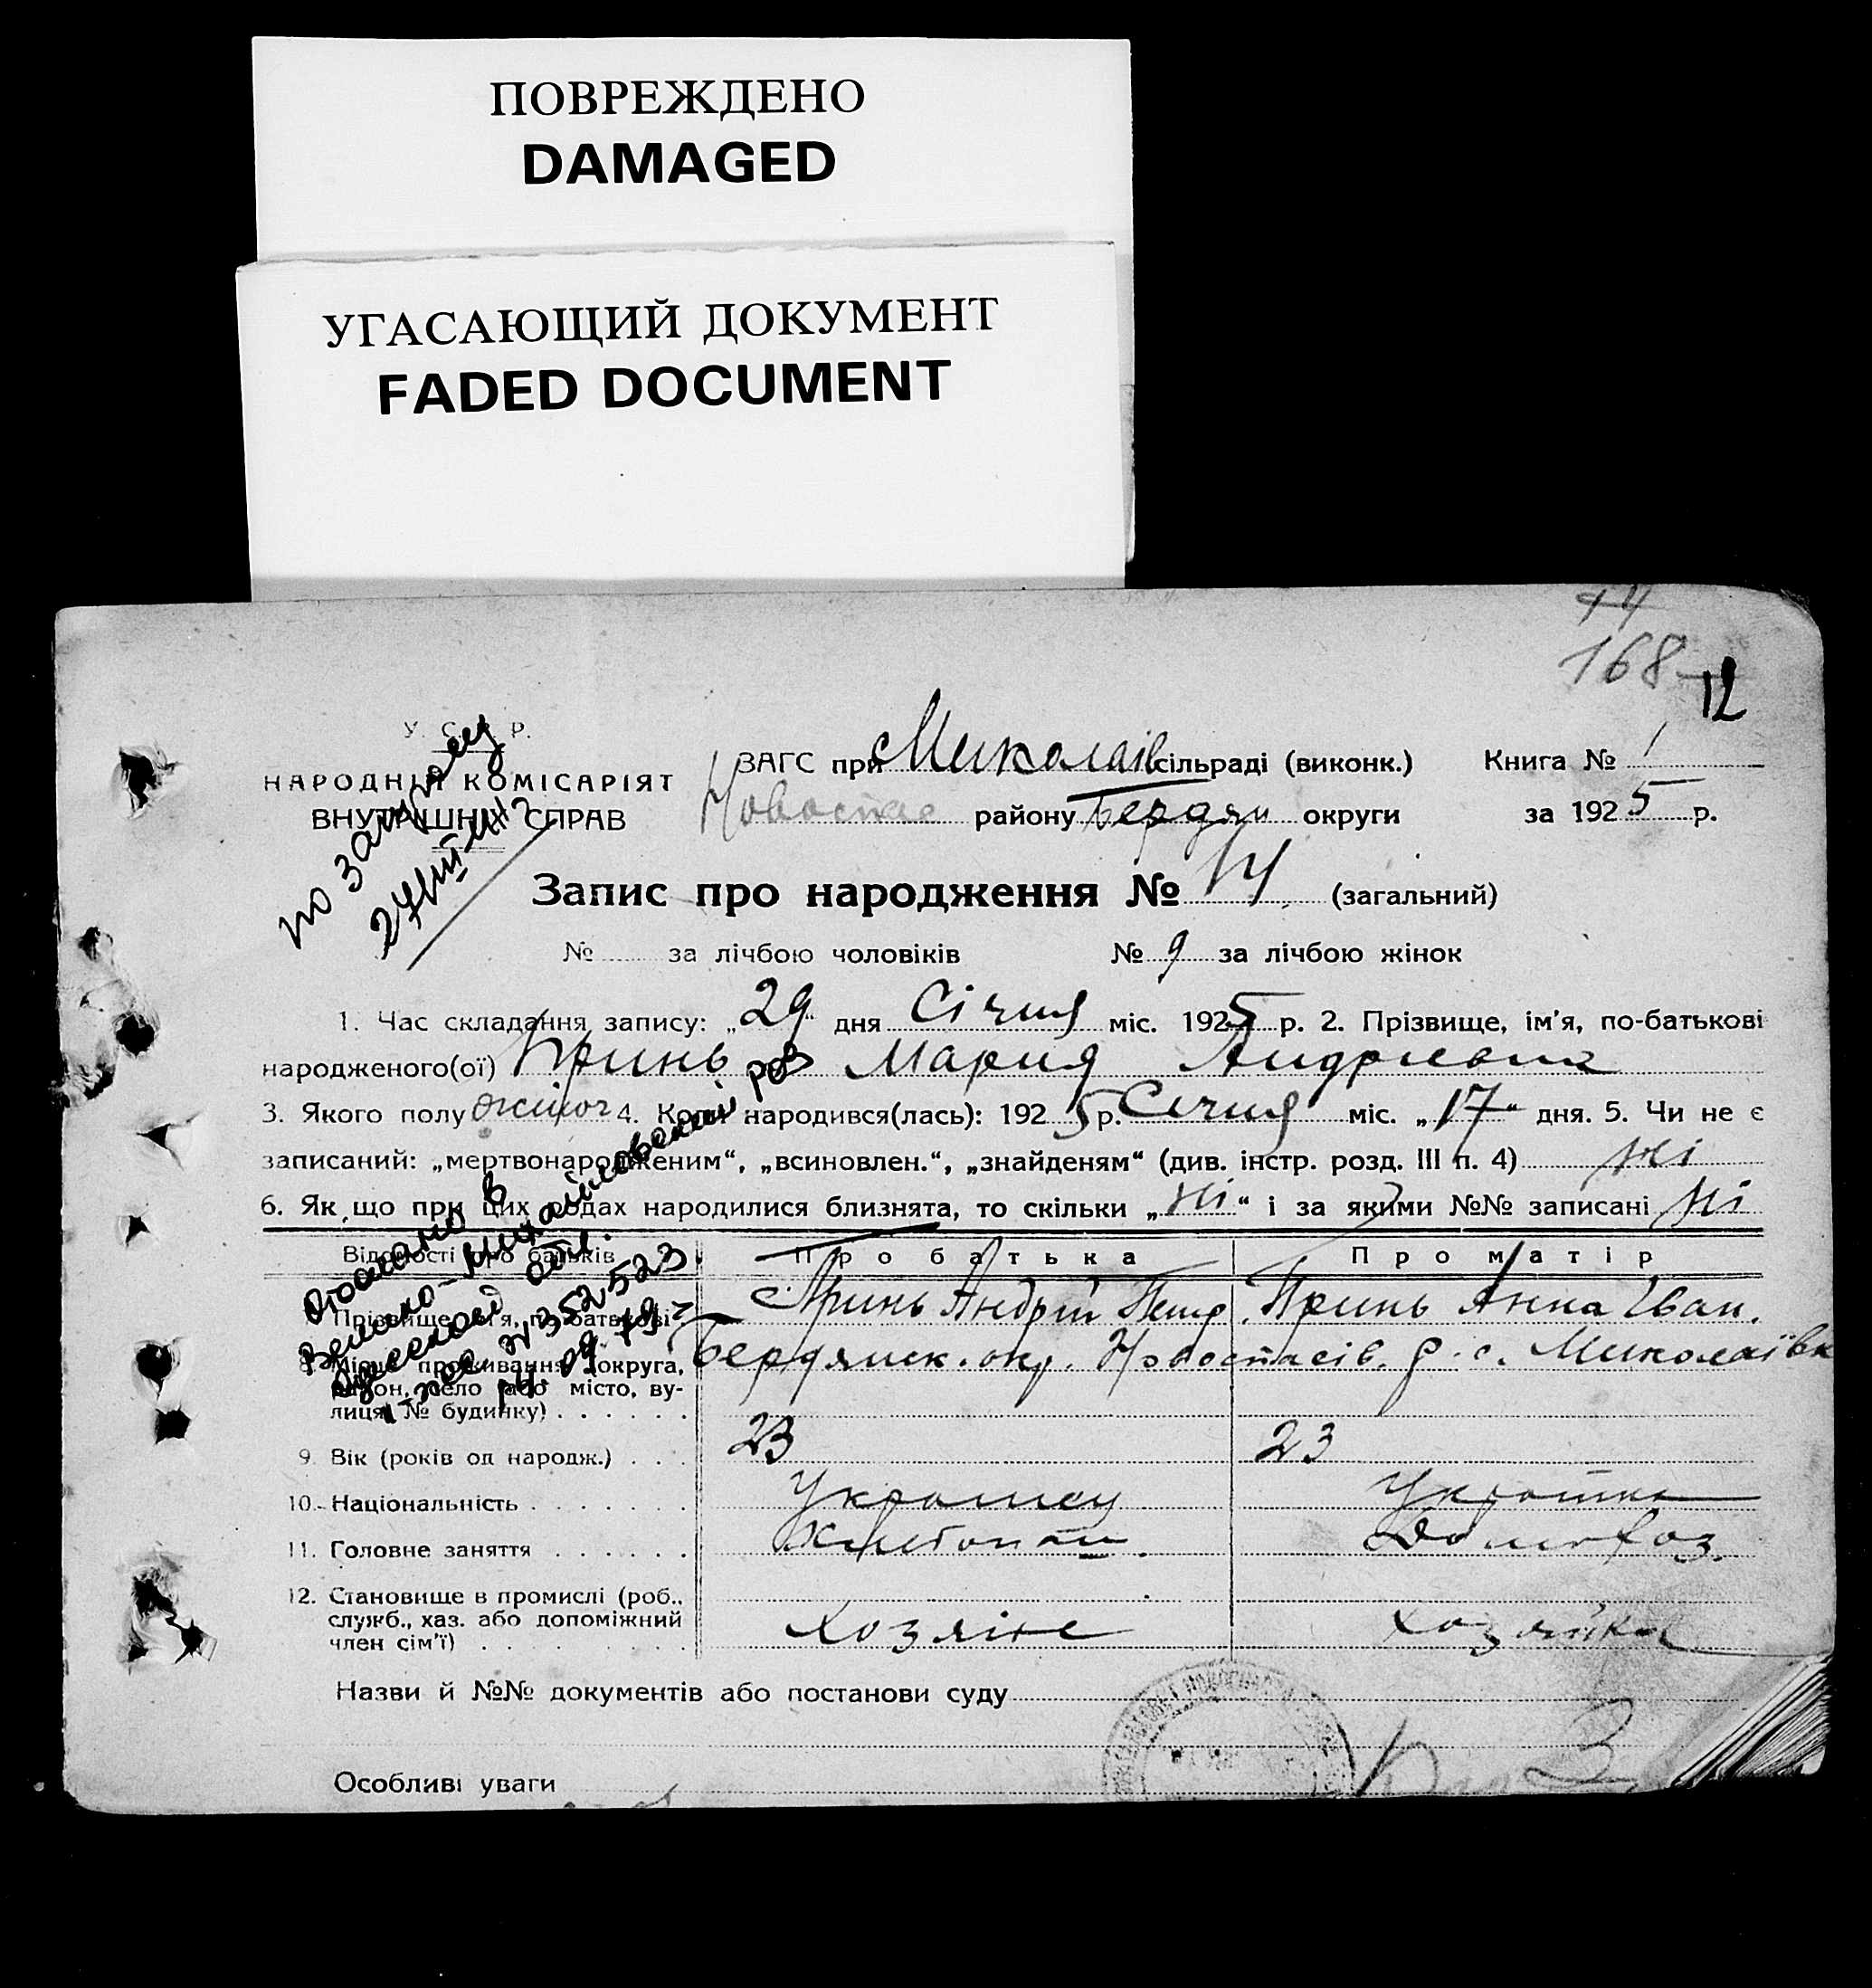 ПОВРЕЖДЕНО
DAMAGED
УГАСАЮЩИЙ ДОКУМЕНТ
FADED DOCUMENT
168
12
У. С. Р. Р.
НАРОДНІЙ КОМІСАРІЯТ
ВНУТРІШНІХ СПРАВ
ЗАГС при Миколаїв сільраді (виконк.) Книга № 1
Новоспас району Бердян округи за 1925 р.
Запис про народження № 14 (загальний)
№ за лічбою чоловіків № 9 за лічбою жінок
1. Час складання запису: „29“ дня Січня міс. 1925 р. 2. Прізвище, ім'я, по-батькові
народженого(ої) Принь Мария Андриевна
3. Якого полу жіноч 4. Коли народився(лась): 1925 р. Січня міс. „17“ дня. 5. Чи не є
записаний: „мертвонародженим“, „всиновлен.“, „знайденям“ (див. інстр. розд. III п. 4) ні
6. Як що при цих родах народилися близнята, то скільки „ні“ і за якими №№ записані ні
Відомості про батьків Про батька Про матір
Прізвище, ім'я, по-батькові Принь Андрій Петр. Принь Анна Іван.
8. Місце проживання (округа, Бердянск. окр. Новоспасів. р. с. Миколаївк
район, село або місто, ву-
лиця, № будинку)
9. Вік (років од народж.) 23 23
10. Національність Украинец Украінка
11. Головне заняття Хлебопаш. Домохоз.
12. Становище в промислі (роб.,
служб., хаз. або допоміжний
член сім'ї) Хозяіне Хозяйка
Назви й №№ документів або постанови суду
Особливі уваги
по запросу
Великo-Михайловский
Одесской обл.
352523